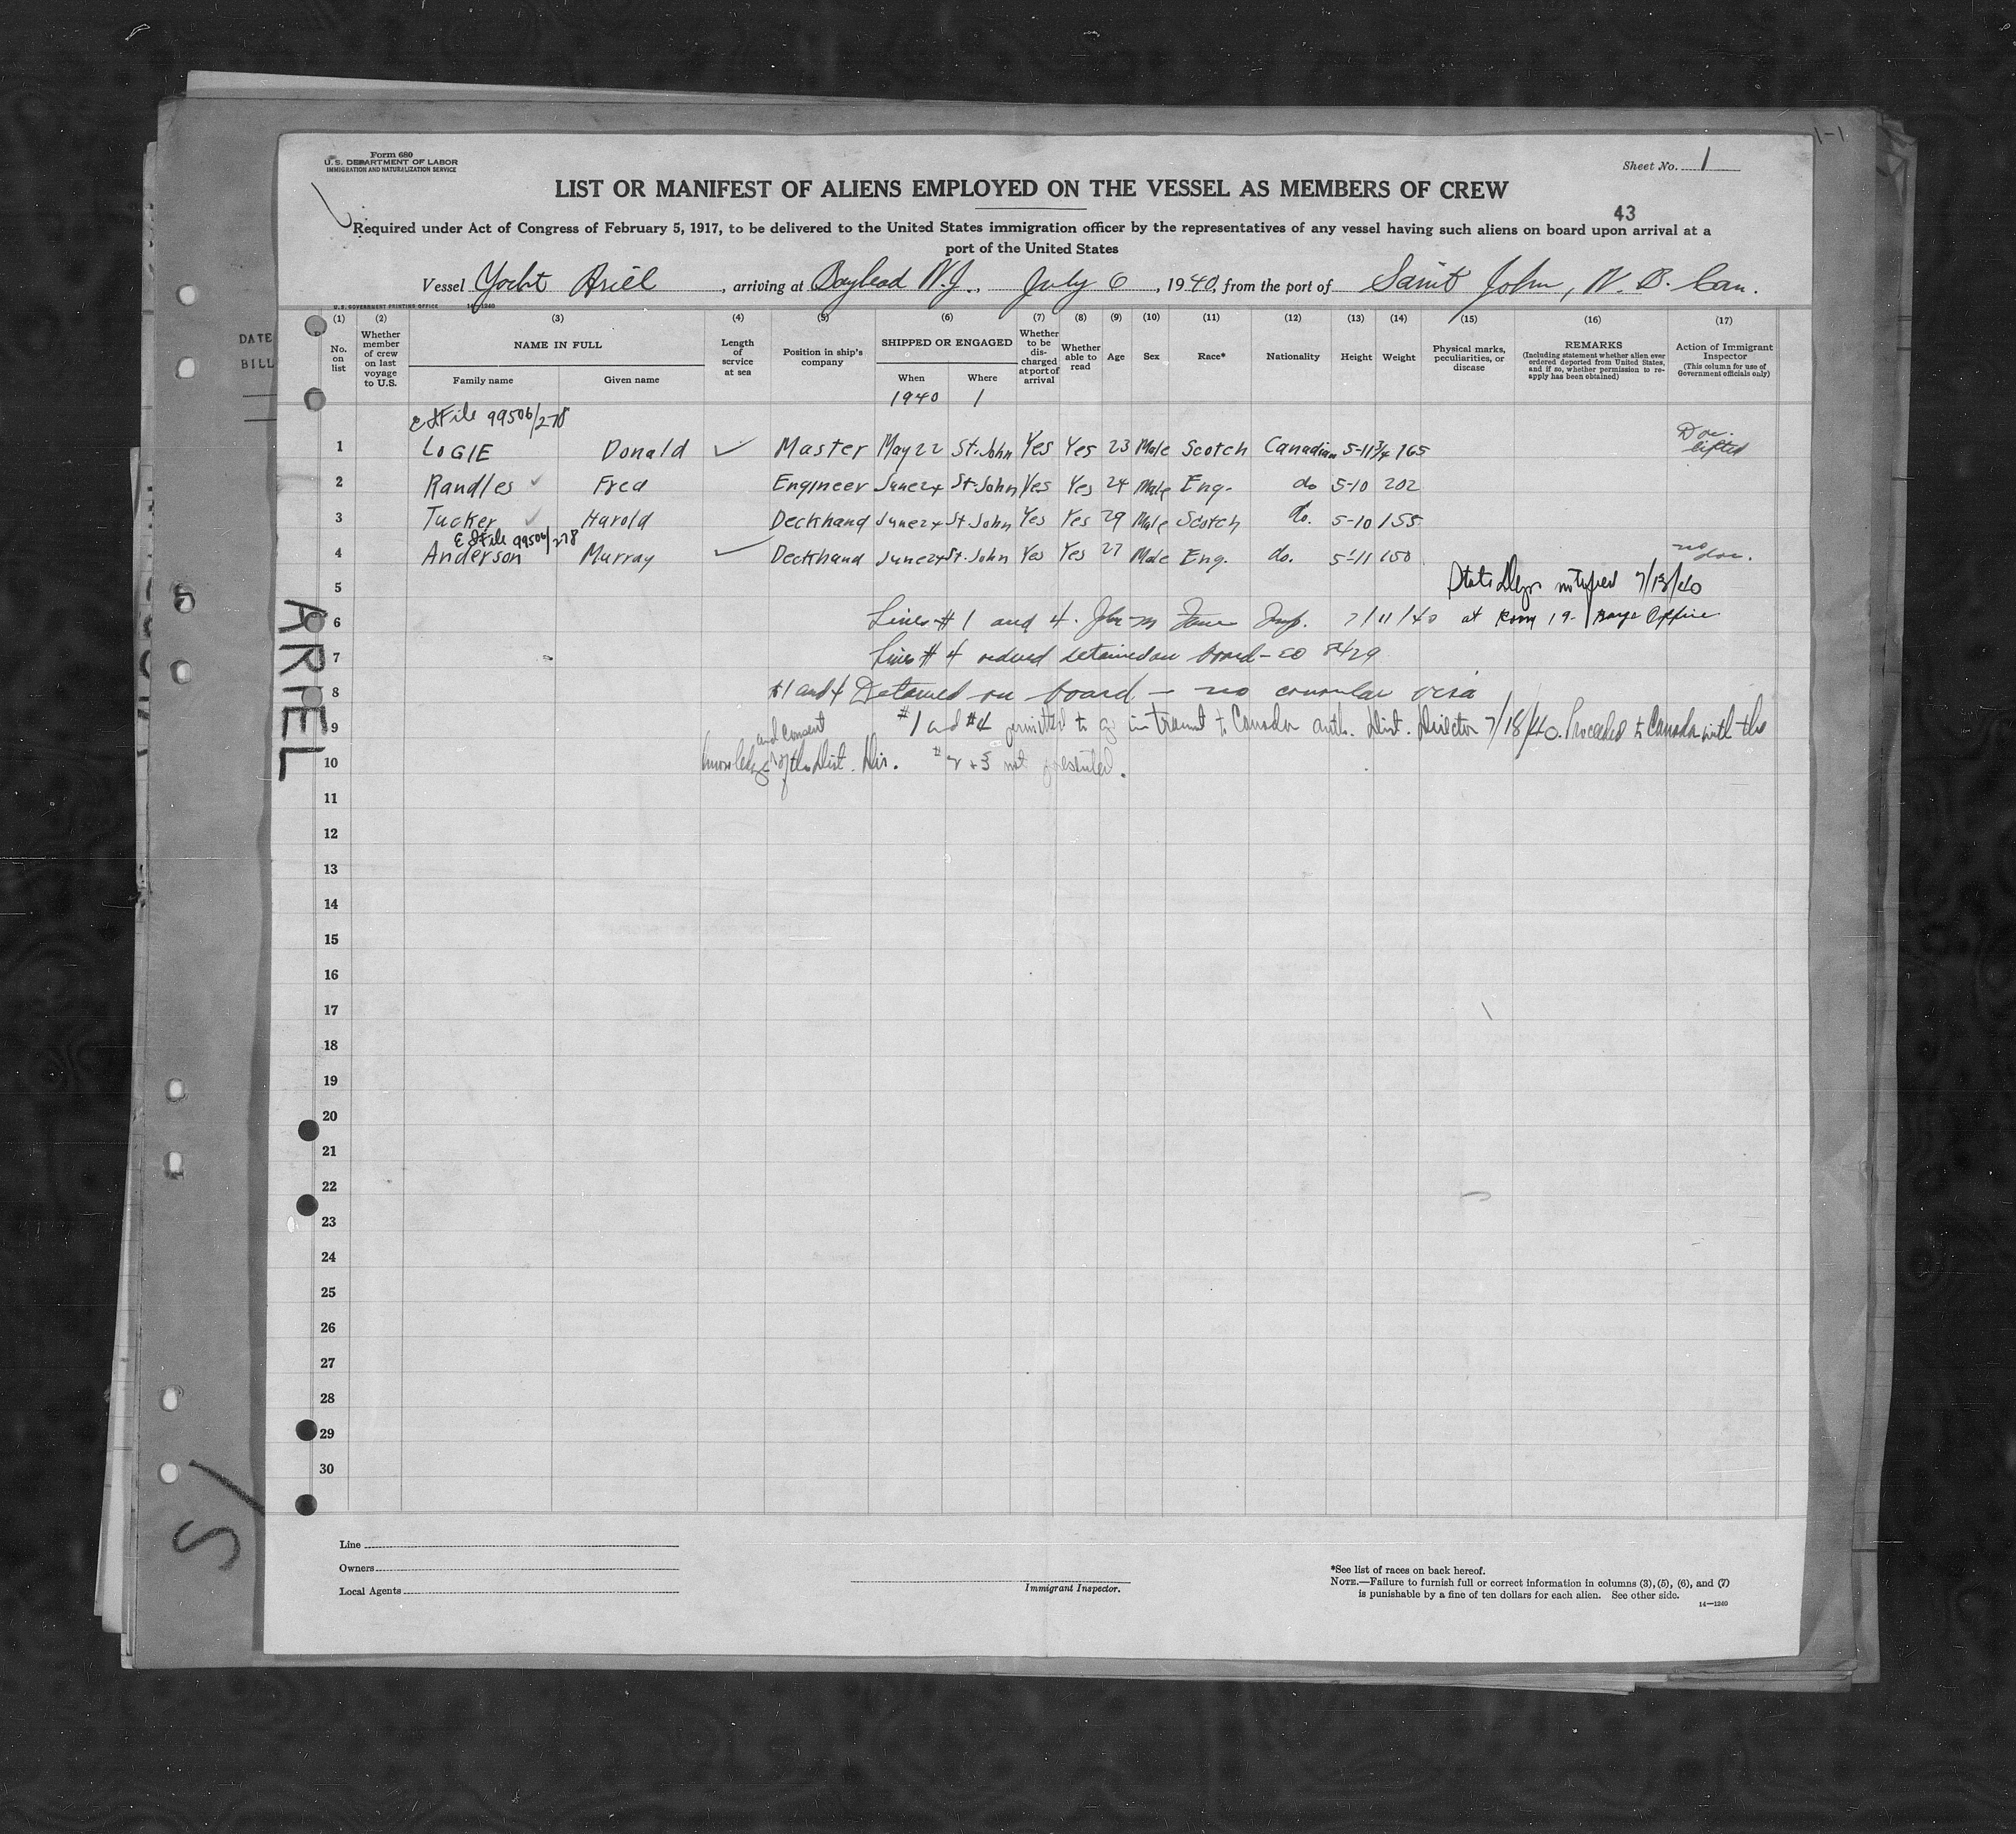 Form 680
U. S. DEPARTMENT OF LABOR
IMMIGRATION AND NATURALIZATION SERVICE
Sheet No. 1
LIST OR MANIFEST OF ALIENS EMPLOYED ON THE VESSEL AS MEMBERS OF CREW
43
Required under Act of Congress of February 5, 1917, to be delivered to the United States immigration officer by the representatives of any vessel having such aliens on board upon arrival at a
port of the United States
Vessel Yacht Ariel, arriving at Bayhead N.J., July 6, 1940, from the port of Saint John, N. B. Can.
U. S. GOVERNMENT PRINTING OFFICE 14-1240
DATE
BILL
(1) (2) (3) (4) (5) (6) (7) (8) (9) (10) (11) (12) (13) (14) (15) (16) (17)
No. on list
Whether member of crew on last voyage to U.S.
NAME IN FULL
Family name
Given name
Length of service at sea
Position in ship's company
SHIPPED OR ENGAGED
When
Where
Whether to be discharged at port of arrival
Whether able to read
Age
Sex
Race*
Nationality
Height
Weight
Physical marks, peculiarities, or disease
REMARKS
(Including statement whether alien ever ordered deported from United States, and if so, whether permission to reapply has been obtained)
Action of Immigrant Inspector
(This column for use of Government officials only)
1940
File 99506/278
1 LOGIE Donald ✓ Master May 22 St. John Yes Yes 23 Male Scotch Canadian 5-11 3/4 165 Doc. lifted
2 Randles ✓ Fred Engineer June 24 St. John Yes Yes 24 Male Eng. do 5-10 202
3 Tucker ✓ Harold Deckhand June 24 St. John Yes Yes 29 Male Scotch do. 5-10 155
File 99506/278
4 Anderson Murray ✓ Deckhand June 24 St. John Yes Yes 27 Male Eng. do. 5-11 150 no doc.
5 7/13/40
6 Lines #1 and 4. Insp. 7/11/40 at Room 19- Barge Office
7 Line #4 detained on board - EO 8429
8 #1 and 4 Detained on board - no consular visa
9 #1 and #4 permitted to go in transit to Canada auth. Dist. Director 7/18/40. Proceeded to Canada with the
and consent
10 knowledge of the Dist. Dir. #2 + 3 not presented.
11
12
13
14
15
16
17
18
19
20
21
22
23
24
25
26
27
28
29
30
ARIEL
Line
Owners
Local Agents
Immigrant Inspector.
*See list of races on back hereof.
NOTE.—Failure to furnish full or correct information in columns (3), (5), (6), and (7)
is punishable by a fine of ten dollars for each alien. See other side.
14-1240